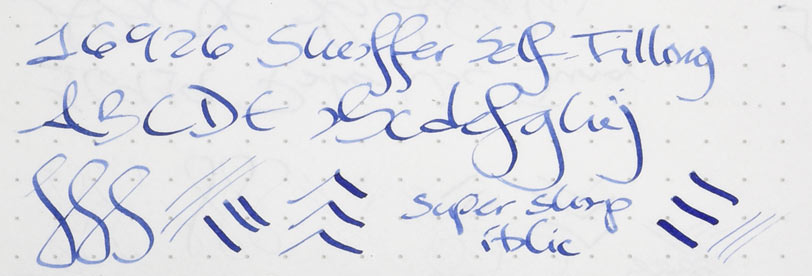 16926 Sheaffer Self-Filling
ABCDE abcdefghij
super sharp
italic